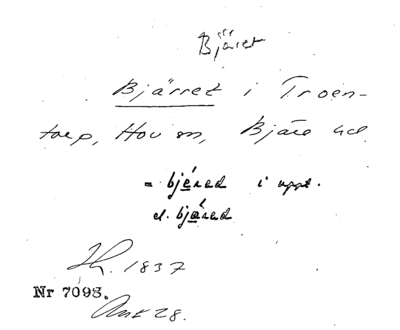 Bjäret
Bjärret i Troen-
torp, Hov sn, Bjäre hd.
= bjéred i uppt.
el. bjäred
1837
Nr 7098.
Ant 28.